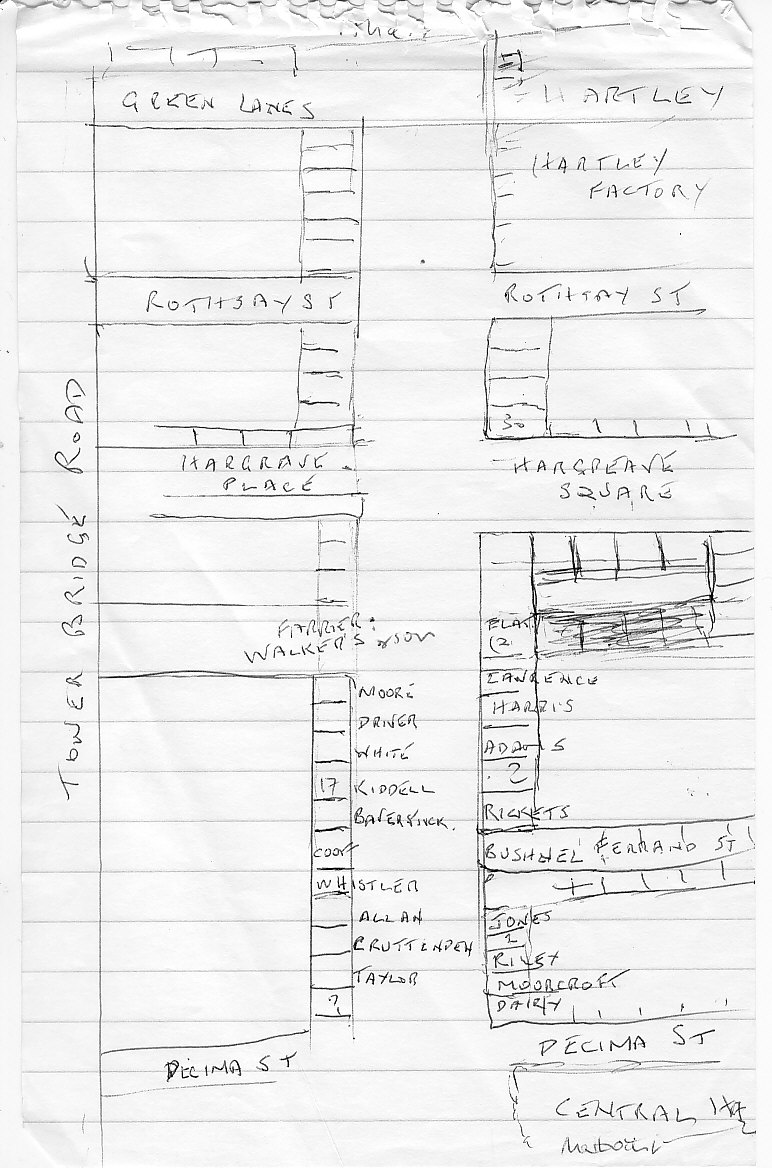 GREEN LANES
HARTLEY
HARTLEY
FACTORY
ROTHSAY ST
ROTHSAY ST
TOWER BRIDGE ROAD
30
HARGRAVE
PLACE
HARGREAVE
SQUARE
FARRIER:
WALKER'S & SON
FLAT
LAWRENCE
MOORE
HARRIS
DRIVER
ADAMS
WHITE
?
17 KIDDELL
RICKETS
BUSHNEL FERRAND ST
WHISTLER
ALLAN
JONES
CRUTTENDEN
?
RILEY
TAYLOR
MOORCROFT
?
DAIRY
DECIMA ST
DECIMA ST
CENTRAL